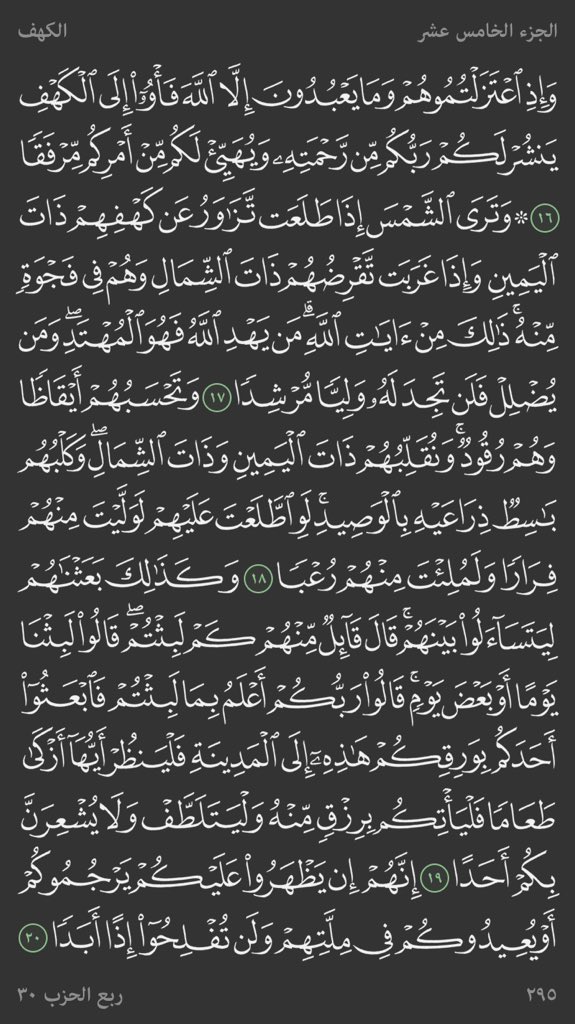 الجزء الخامس عشر
الكهف
وَإِذِ ٱعْتَزَلْتُمُوهُمْ وَمَا يَعْبُدُونَ إِلَّا ٱللَّهَ فَأْوُۥٓا۟ إِلَى ٱلْكَهْفِ
يَنشُرْ لَكُمْ رَبُّكُم مِّن رَّحْمَتِهِۦ وَيُهَيِّئْ لَكُم مِّنْ أَمْرِكُم مِّرْفَقًا
١٦ ۞ وَتَرَى ٱلشَّمْسَ إِذَا طَلَعَت تَّزَٰوَرُ عَن كَهْفِهِمْ ذَاتَ
ٱلْيَمِينِ وَإِذَا غَرَبَت تَّقْرِضُهُمْ ذَاتَ ٱلشِّمَالِ وَهُمْ فِى فَجْوَةٍ
مِّنْهُ ۚ ذَٰلِكَ مِنْ ءَايَٰتِ ٱللَّهِ ۗ مَن يَهْدِ ٱللَّهُ فَهُوَ ٱلْمُهْتَدِ ۖ وَمَن
يُضْلِلْ فَلَن تَجِدَ لَهُۥ وَلِيًّا مُّرْشِدًا ١٧ وَتَحْسَبُهُمْ أَيْقَاظًا
وَهُمْ رُقُودٌ ۚ وَنُقَلِّبُهُمْ ذَاتَ ٱلْيَمِينِ وَذَاتَ ٱلشِّمَالِ ۖ وَكَلْبُهُم
بَٰسِطٌ ذِرَاعَيْهِ بِٱلْوَصِيدِ ۚ لَوِ ٱطَّلَعْتَ عَلَيْهِمْ لَوَلَّيْتَ مِنْهُمْ
فِرَارًا وَلَمُلِئْتَ مِنْهُمْ رُعْبًا ١٨ وَكَذَٰلِكَ بَعَثْنَٰهُمْ
لِيَتَسَآءَلُوا۟ بَيْنَهُمْ ۚ قَالَ قَآئِلٌ مِّنْهُمْ كَمْ لَبِثْتُمْ ۖ قَالُوا۟ لَبِثْنَا
يَوْمًا أَوْ بَعْضَ يَوْمٍ ۚ قَالُوا۟ رَبُّكُمْ أَعْلَمُ بِمَا لَبِثْتُمْ فَٱبْعَثُوٓا۟
أَحَدَكُم بِوَرِقِكُمْ هَٰذِهِۦٓ إِلَى ٱلْمَدِينَةِ فَلْيَنظُرْ أَيُّهَآ أَزْكَىٰ
طَعَامًا فَلْيَأْتِكُم بِرِزْقٍ مِّنْهُ وَلْيَتَلَطَّفْ وَلَا يُشْعِرَنَّ
بِكُمْ أَحَدًا ١٩ إِنَّهُمْ إِن يَظْهَرُوا۟ عَلَيْكُمْ يَرْجُمُوكُمْ
أَوْ يُعِيدُوكُمْ فِى مِلَّتِهِمْ وَلَن تُفْلِحُوٓا۟ إِذًا أَبَدًا ٢٠
٢٩٥
ربع الحزب ٣٠